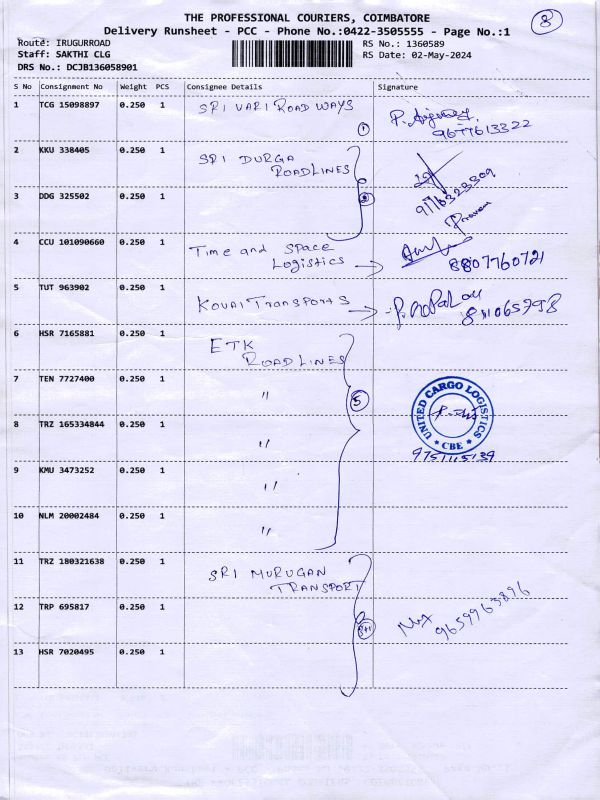 8
THE PROFESSIONAL COURIERS, COIMBATORE
Delivery Runsheet - PCC - Phone No.:0422-3505555 - Page No.:1
Route: IRUGURROAD RS No.: 1360589
Staff: SAKTHI CLG RS Date: 02-May-2024
DRS No.: DCJB136058901
S No Consignment No Weight PCS Consignee Details Signature
1 TCG 15098897 0.250 1 SRI VARI ROAD WAYS
1 9677613322
2 KKU 338405 0.250 1 SRI DURGA
ROADLINES
3 DDG 325502 0.250 1 9176323309
4 CCU 101090660 0.250 1 Time and Space
Logistics 8807760721
5 TUT 963902 0.250 1 KOVAI TRANSPORTS
6 HSR 7165881 0.250 1 ETK
ROADLINES
7 TEN 7727400 0.250 1 〃 5
8 TRZ 165334844 0.250 1 〃 UNITED CARGO LOGISTICS
CBE
9 KMU 3473252 0.250 1 〃
10 NLM 20002484 0.250 1 〃
11 TRZ 180321638 0.250 1 SRI MURUGAN
TRANSPORT
12 TRP 695817 0.250 1 9659963896
13 HSR 7020495 0.250 1